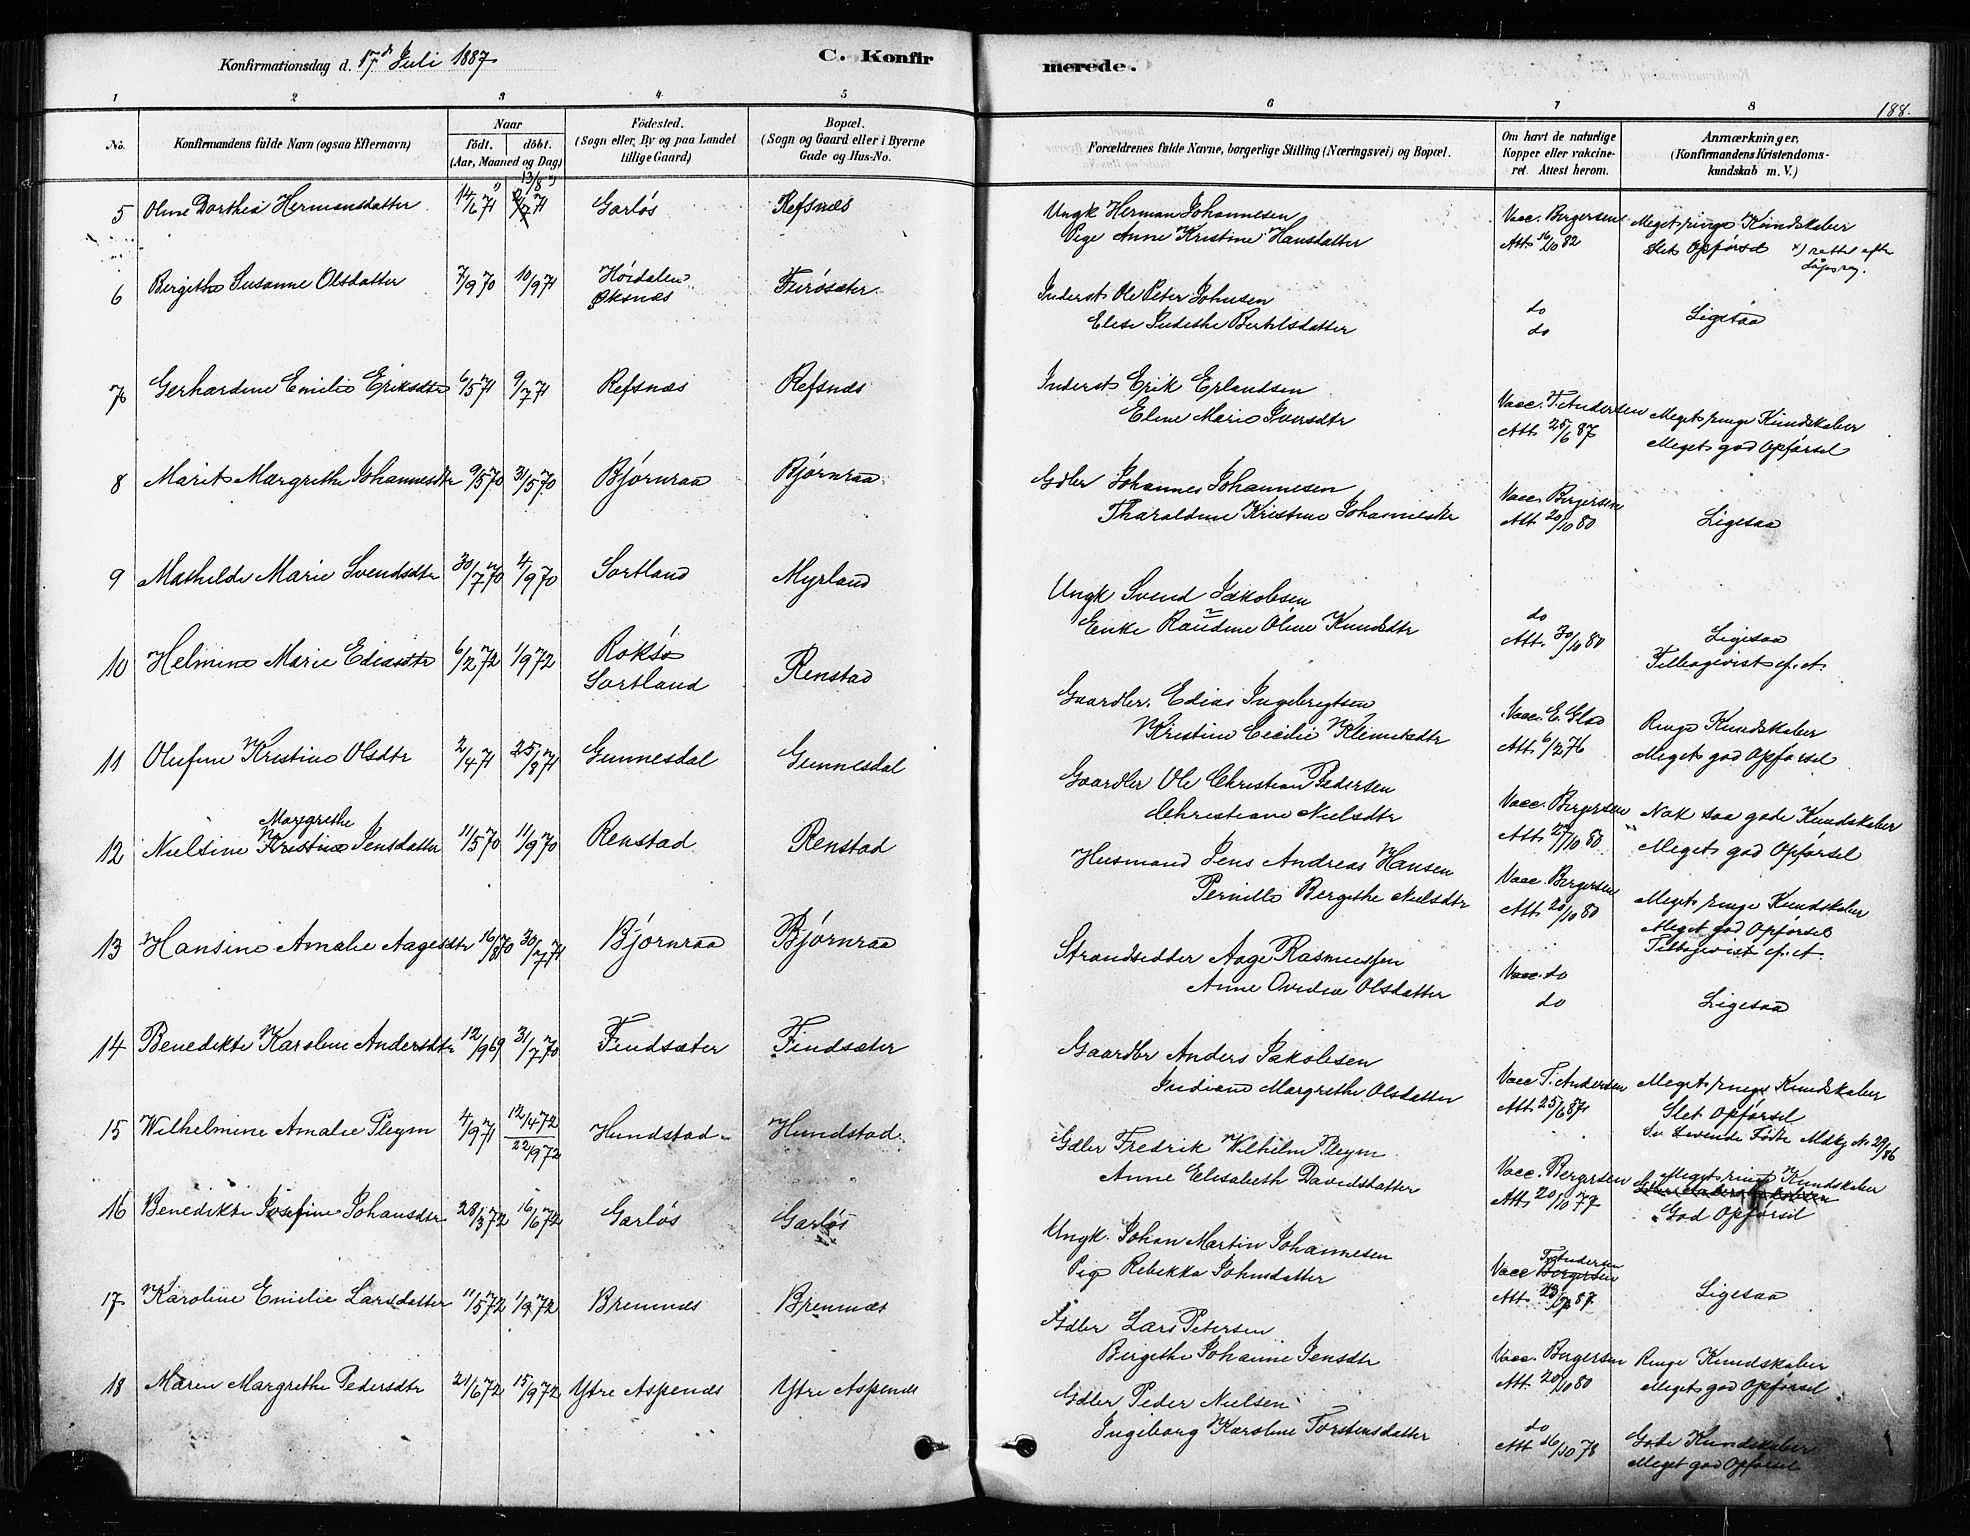 Konfirmationsdag d. 17de Juli 1887
C. Konfirmerede.
188.
1 2 3 4 5 6 7 8
No. Konfirmandens fulde Navn (ogsaa Efternavn) Naar født. døbt. (Aar, Maaned og Dag) Fødested. (Sogn eller By og paa Landet tillige Gaard) Bopæl. (Sogn og Gaard eller i Byerne Gade og Hus-No. Forældrenes fulde Navne, borgerlige Stilling (Næringsvei) og Bopæl. Om havt de naturlige Kopper eller vakcineret. Attest herom. Anmærkninger. (Konfirmandens Kristendomskundskab m. V.)
5 Oline Dorthea Hermansdatter 14/6 71 13/8 71 Garløs Refsnæs Ungk Herman Johannesen Vacc. Bergersen Meget ringe Kundskaber
Pige Anne Kristine Hansdatter Att 16/10 82 Slet Opførsel x) rettet efter Dåpsreg.
6 Bergithe Susanne Olsdatter 7/9 70 10/9 71 Høidalen Øksnæs Inderst Ole Peter Johnsen do Ligesaa
Elise Judithe Bertelsdatter do
7 Gerhardine Emilie Eriksdtr 6/5 71 9/7 71 Refsnæs Refsnæs Inderst Erik Erlandsen Vacc. T. Andersen Meget ringe Kundskaber
Eline Marie Iversdtr Att 25/6 87 Meget god Opførsel
8 Marit Margrethe Johannesdtr 9/5 70 31/5 70 Bjørnraa Bjørnraa Gdbr Johannes Johannesen Vacc. Bergersen Ligesaa
Tharaldine Kristine Johannesdtr Att 20/10 80
9 Mathilde Marie Svendsdtr 30/7 70 4/9 70 Sortland Myrland Ungk Svend Jakobsen do Ligesaa
Enke Raudine Oline Knudsdtr Att. 20/10 80 Tilbagevist cf. at.
10 Helmine Marie Ediasdtr 6/2 72 1/9 72 Roksø Sortland Renstad Gaardbr. Edias Ingebrigtsen Vacc. E. Glad Ringe Kundskaber
Kristine Cecilie Klemetsdtr Att 6/2 76 Meget god Opførsel
11 Olufine Kristine Olsdtr 2/4 71 25/8 71 Gunnesdal Gunnesdal Gaardbr Ole Christian Pedersen Vacc. Bergersen Nok saa gode Kundskaber
Christiane Nielsdtr Att 27/10 80 Meget god Opførsel
12 Nielsine Margrethe Kristine Jensdatter 11/5 70 11/9 70 Renstad Renstad Husmand Jens Andreas Hansen Vacc. Bergersen Meget ringe Kundskaber
Pernille Bergithe Nielsdtr Att 20/10 80 Meget god Opførsel
Tilbagevist cf. at.
13 Hansine Amalie Aagesdtr 16/8 70 30/7 71 Bjørnraa Bjørnraa Strandsidder Aage Rasmussen Vacc. do Ligesaa
Anne Ovidia Olsdatter do
14 Benedikte Karoline Andersdtr 12/9 69 31/7 70 Findsæter Findsæter Gaardbr Anders Jakobsen Vacc T. Andersen Meget ringe Kundskaber
Indiane Margrethe Olsdatter Att 25/6 87 Slet Opførsel
Se Levende Fødte
15 Wilhelmine Amalie Pleym 4/9 71 12/4 72 22/9 72 Hundstad Hundstad Gdbr Fredrik Wilhelm Pleym Vacc. Bergersen Meget ringe Kundskaber
Anne Elisabeth Davidsdatter Att 20/10 77 God Opførsel
16 Benedikte Josefine Johansdtr 28/3 72 16/6 72 Garløs Garløs Ungk. Johan Martin Johannesen Vacc T. Andersen Bergersen Ligesaa
Pige Rebekka Johnsdatter Att
17 Karoline Emilie Larsdatter 11/5 72 1/9 72 Bremnes Bremnes Gdbr Lars Petersen Vacc. Bergersen Ringe Kundskaber
Bergithe Johanne Jensdtr Att. 20/10 80 Meget god Opførsel
18 Maren Margrethe Pedersdtr 21/6 72 15/9 72 Ytre Aspenes Ytre Aspenes Gdbr Peder Nielsen do Gode Kundskaber
Ingeborg Karoline Torstensdatter Att 16/10 78 Meget god Opførsel